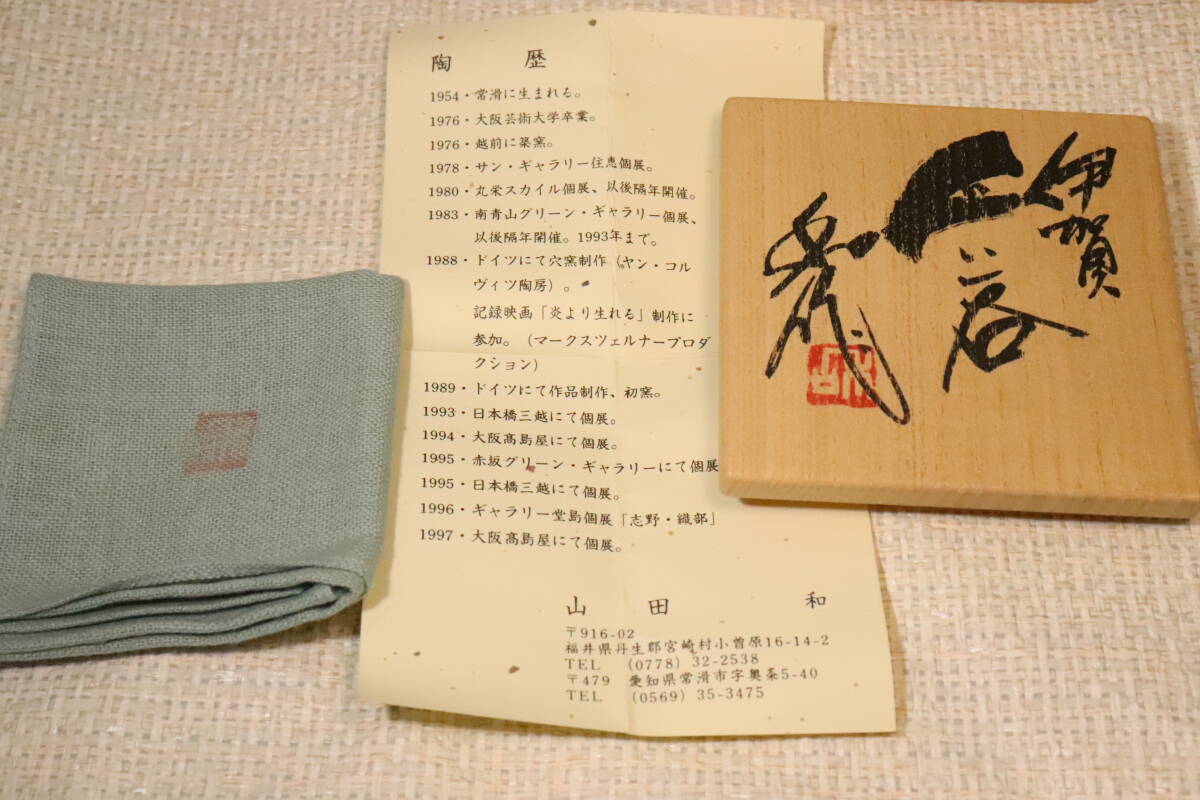 陶 歴
1954・常滑に生まれる。
1976・大阪芸術大学卒業。
1976・越前に築窯。
1978・サン・ギャラリー住恵個展。
1980・丸栄スカイル個展、以後隔年開催。
1983・南青山グリーン・ギャラリー個展、
以後隔年開催。1993年まで。
1988・ドイツにて穴窯制作（ヤン・コル
ヴィツ陶房）。
記録映画「炎より生れる」制作に
参加。（マークスツェルナープロダ
クション）
1989・ドイツにて作品制作、初窯。
1993・日本橋三越にて個展。
1994・大阪髙島屋にて個展。
1995・赤坂グリーン・ギャラリーにて個展
1995・日本橋三越にて個展。
1996・ギャラリー堂島個展「志野・織部」
1997・大阪髙島屋にて個展。
山 田 和
〒916-02
福井県丹生郡宮崎村小曽原16-14-2
TEL (0778) 32-2538
〒479 愛知県常滑市字奥条5-40
TEL (0569) 35-3475
伊賀